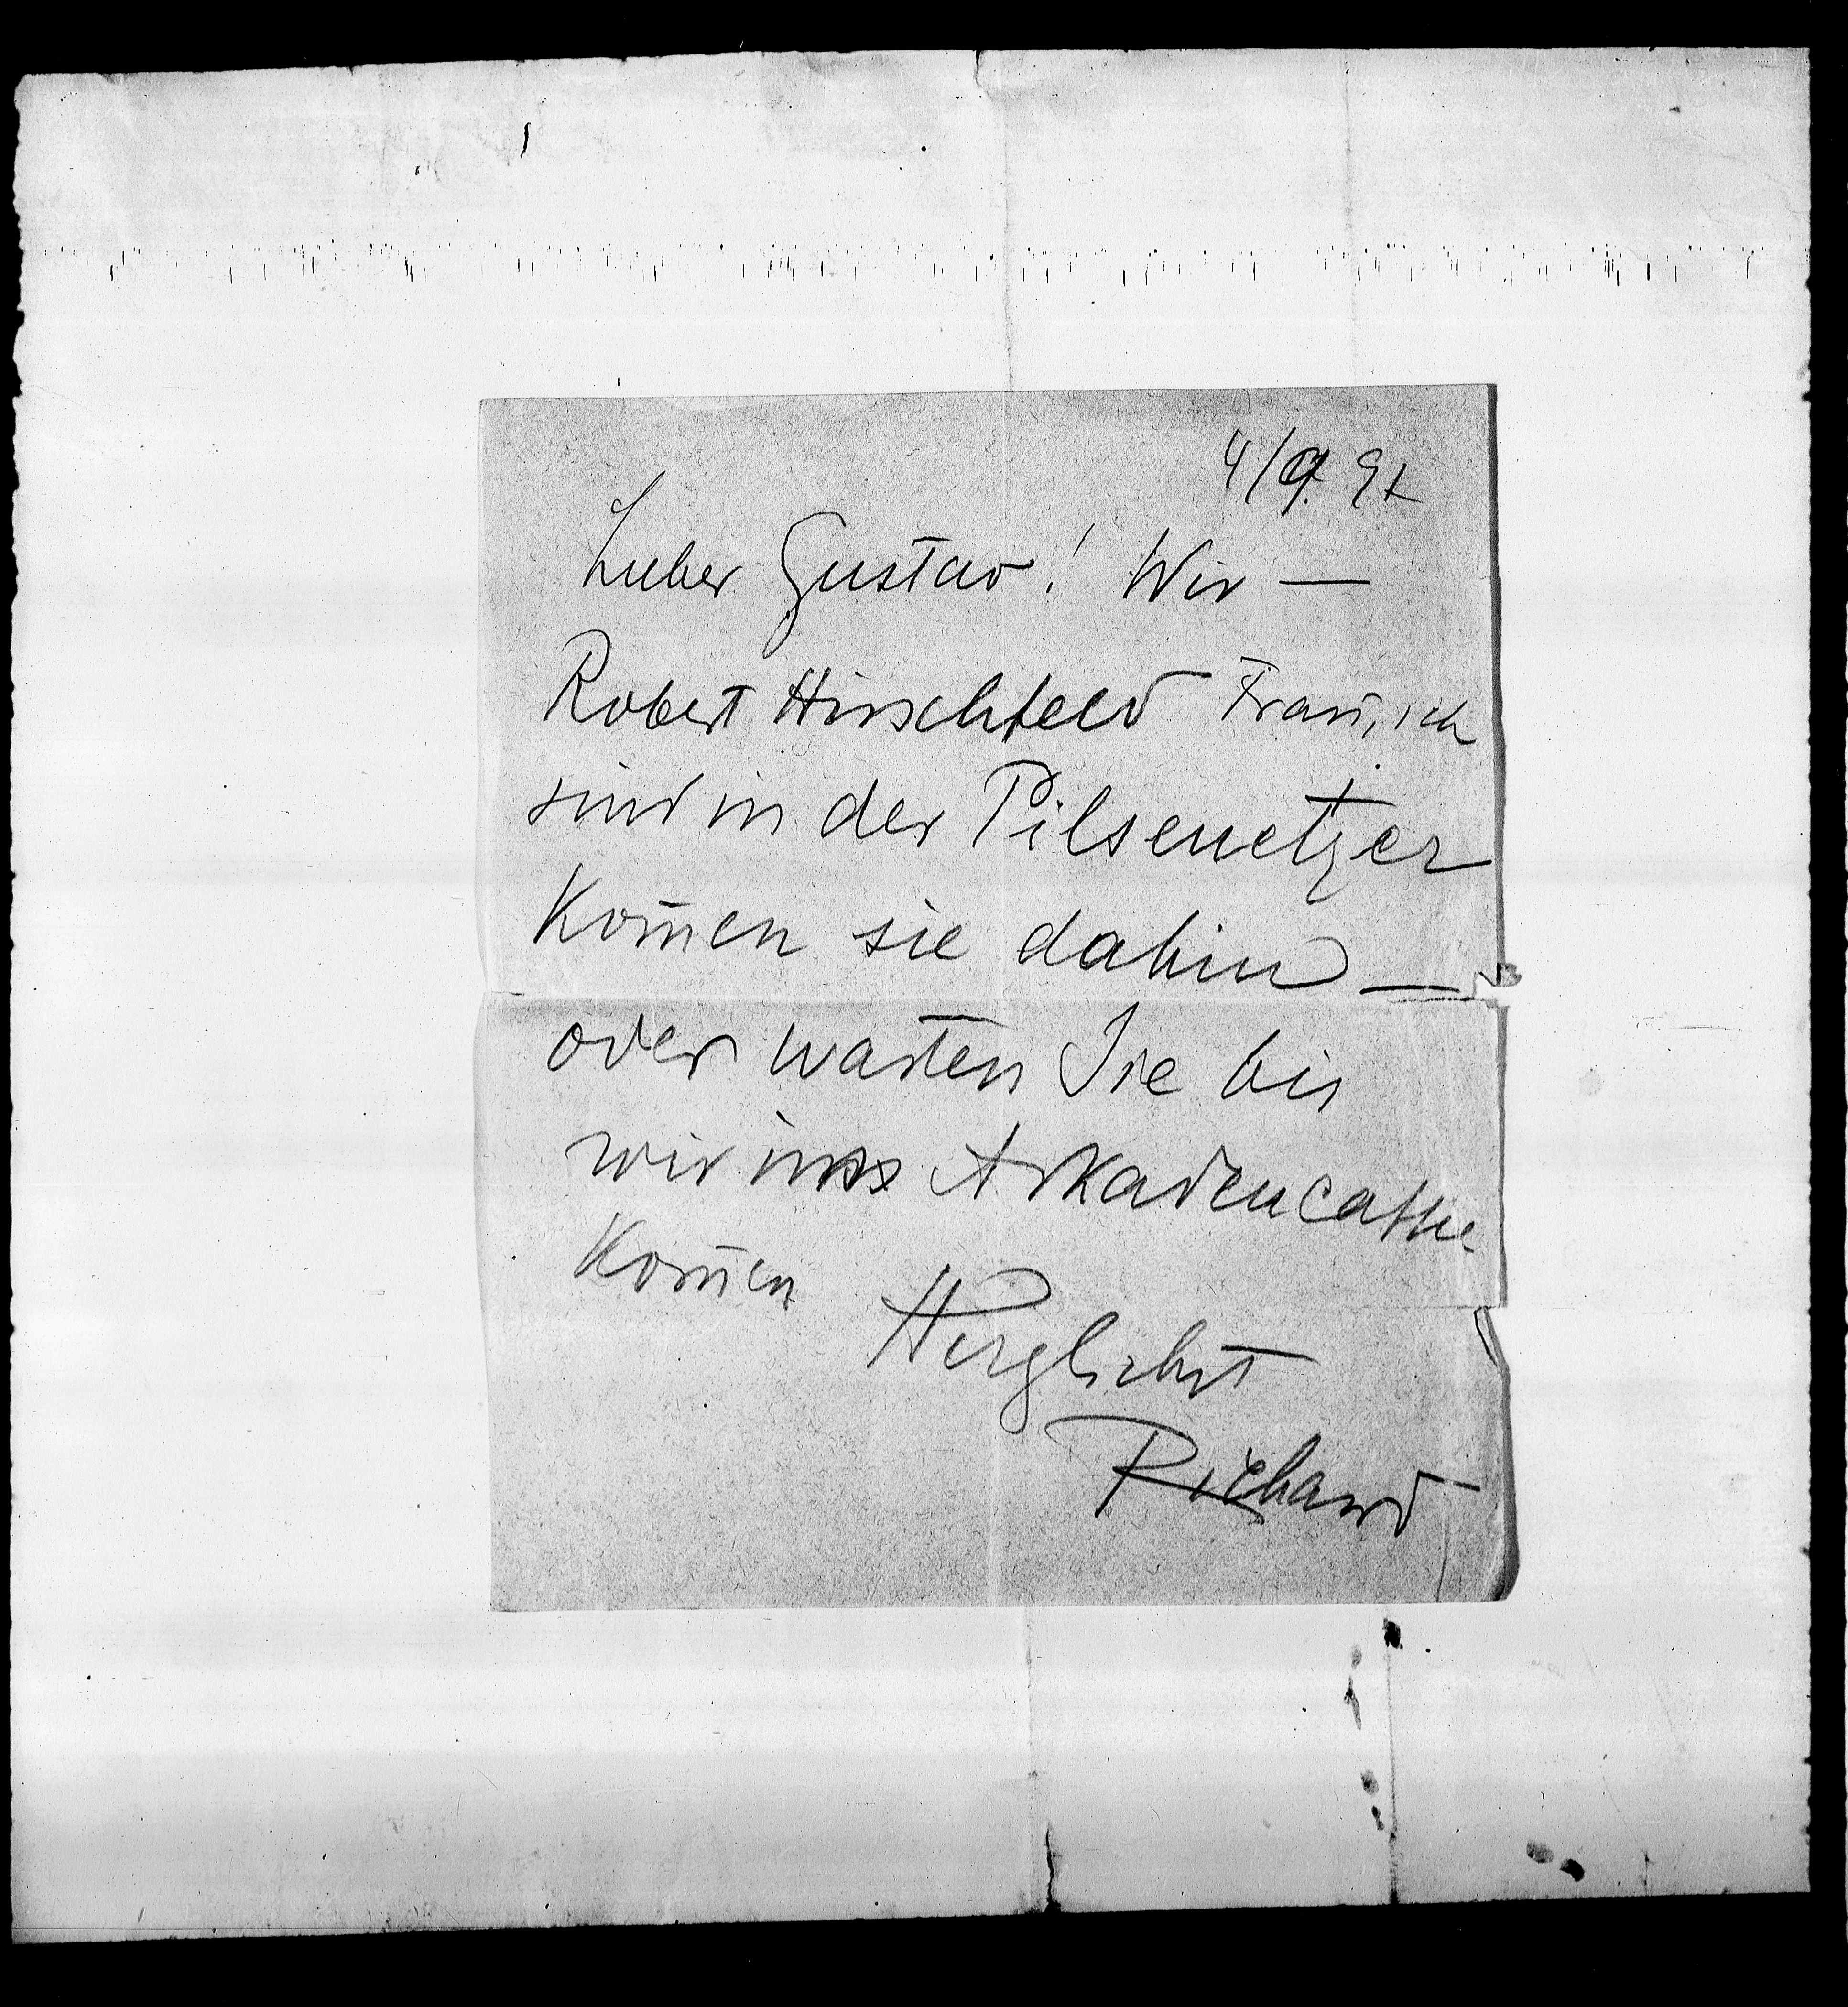 4/9. 91
Lieber Gustav! Wir —
Robert Hirschfeld Frau, ich
sind in der Pilsenetzer
Kom̄en sie dahin —
oder warten Sie bis
wir ins Arkadencaffee
Kom̄en
Herzlichst
Richard